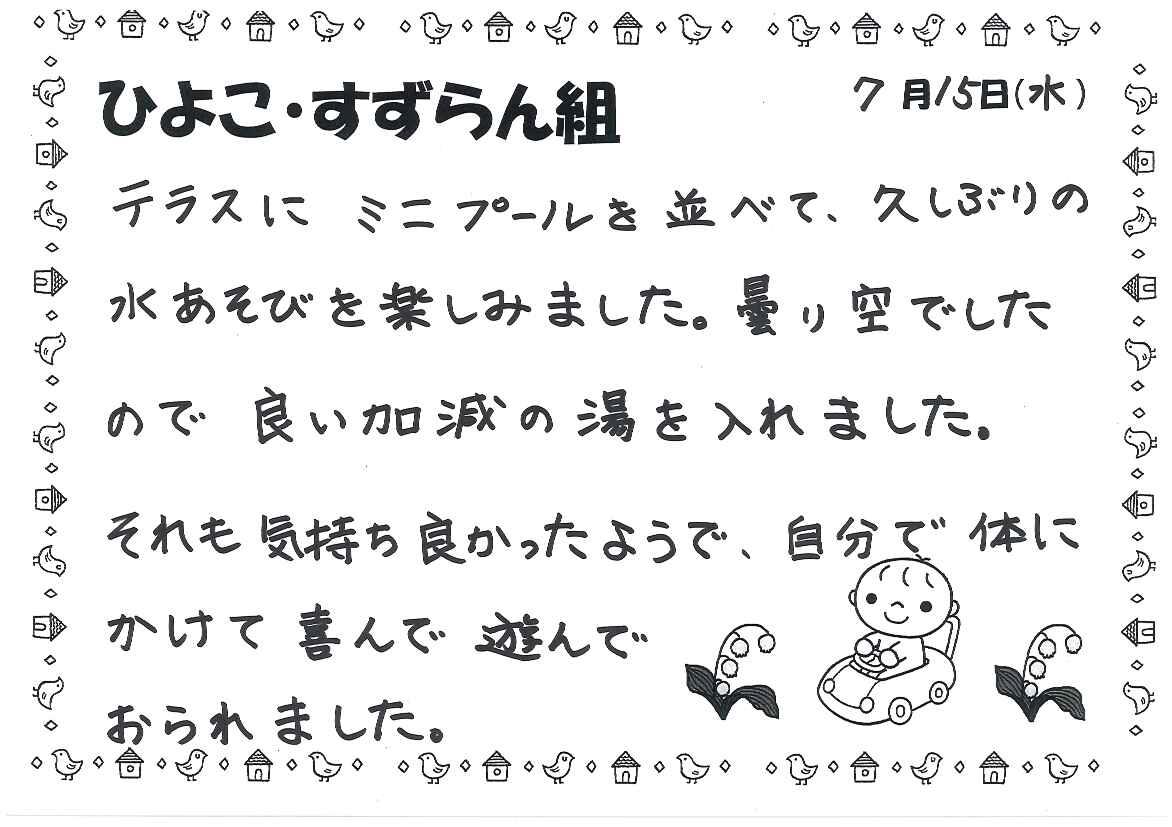 ひよこ・すずらん組
7月15日(水)
テラスに ミニプールを並べて、久しぶりの
水あそびを楽しみました。曇り空でした
ので 良い加減の湯を入れました。
それも気持ち良かったようで、自分で体に
かけて喜んで遊んで
おられました。